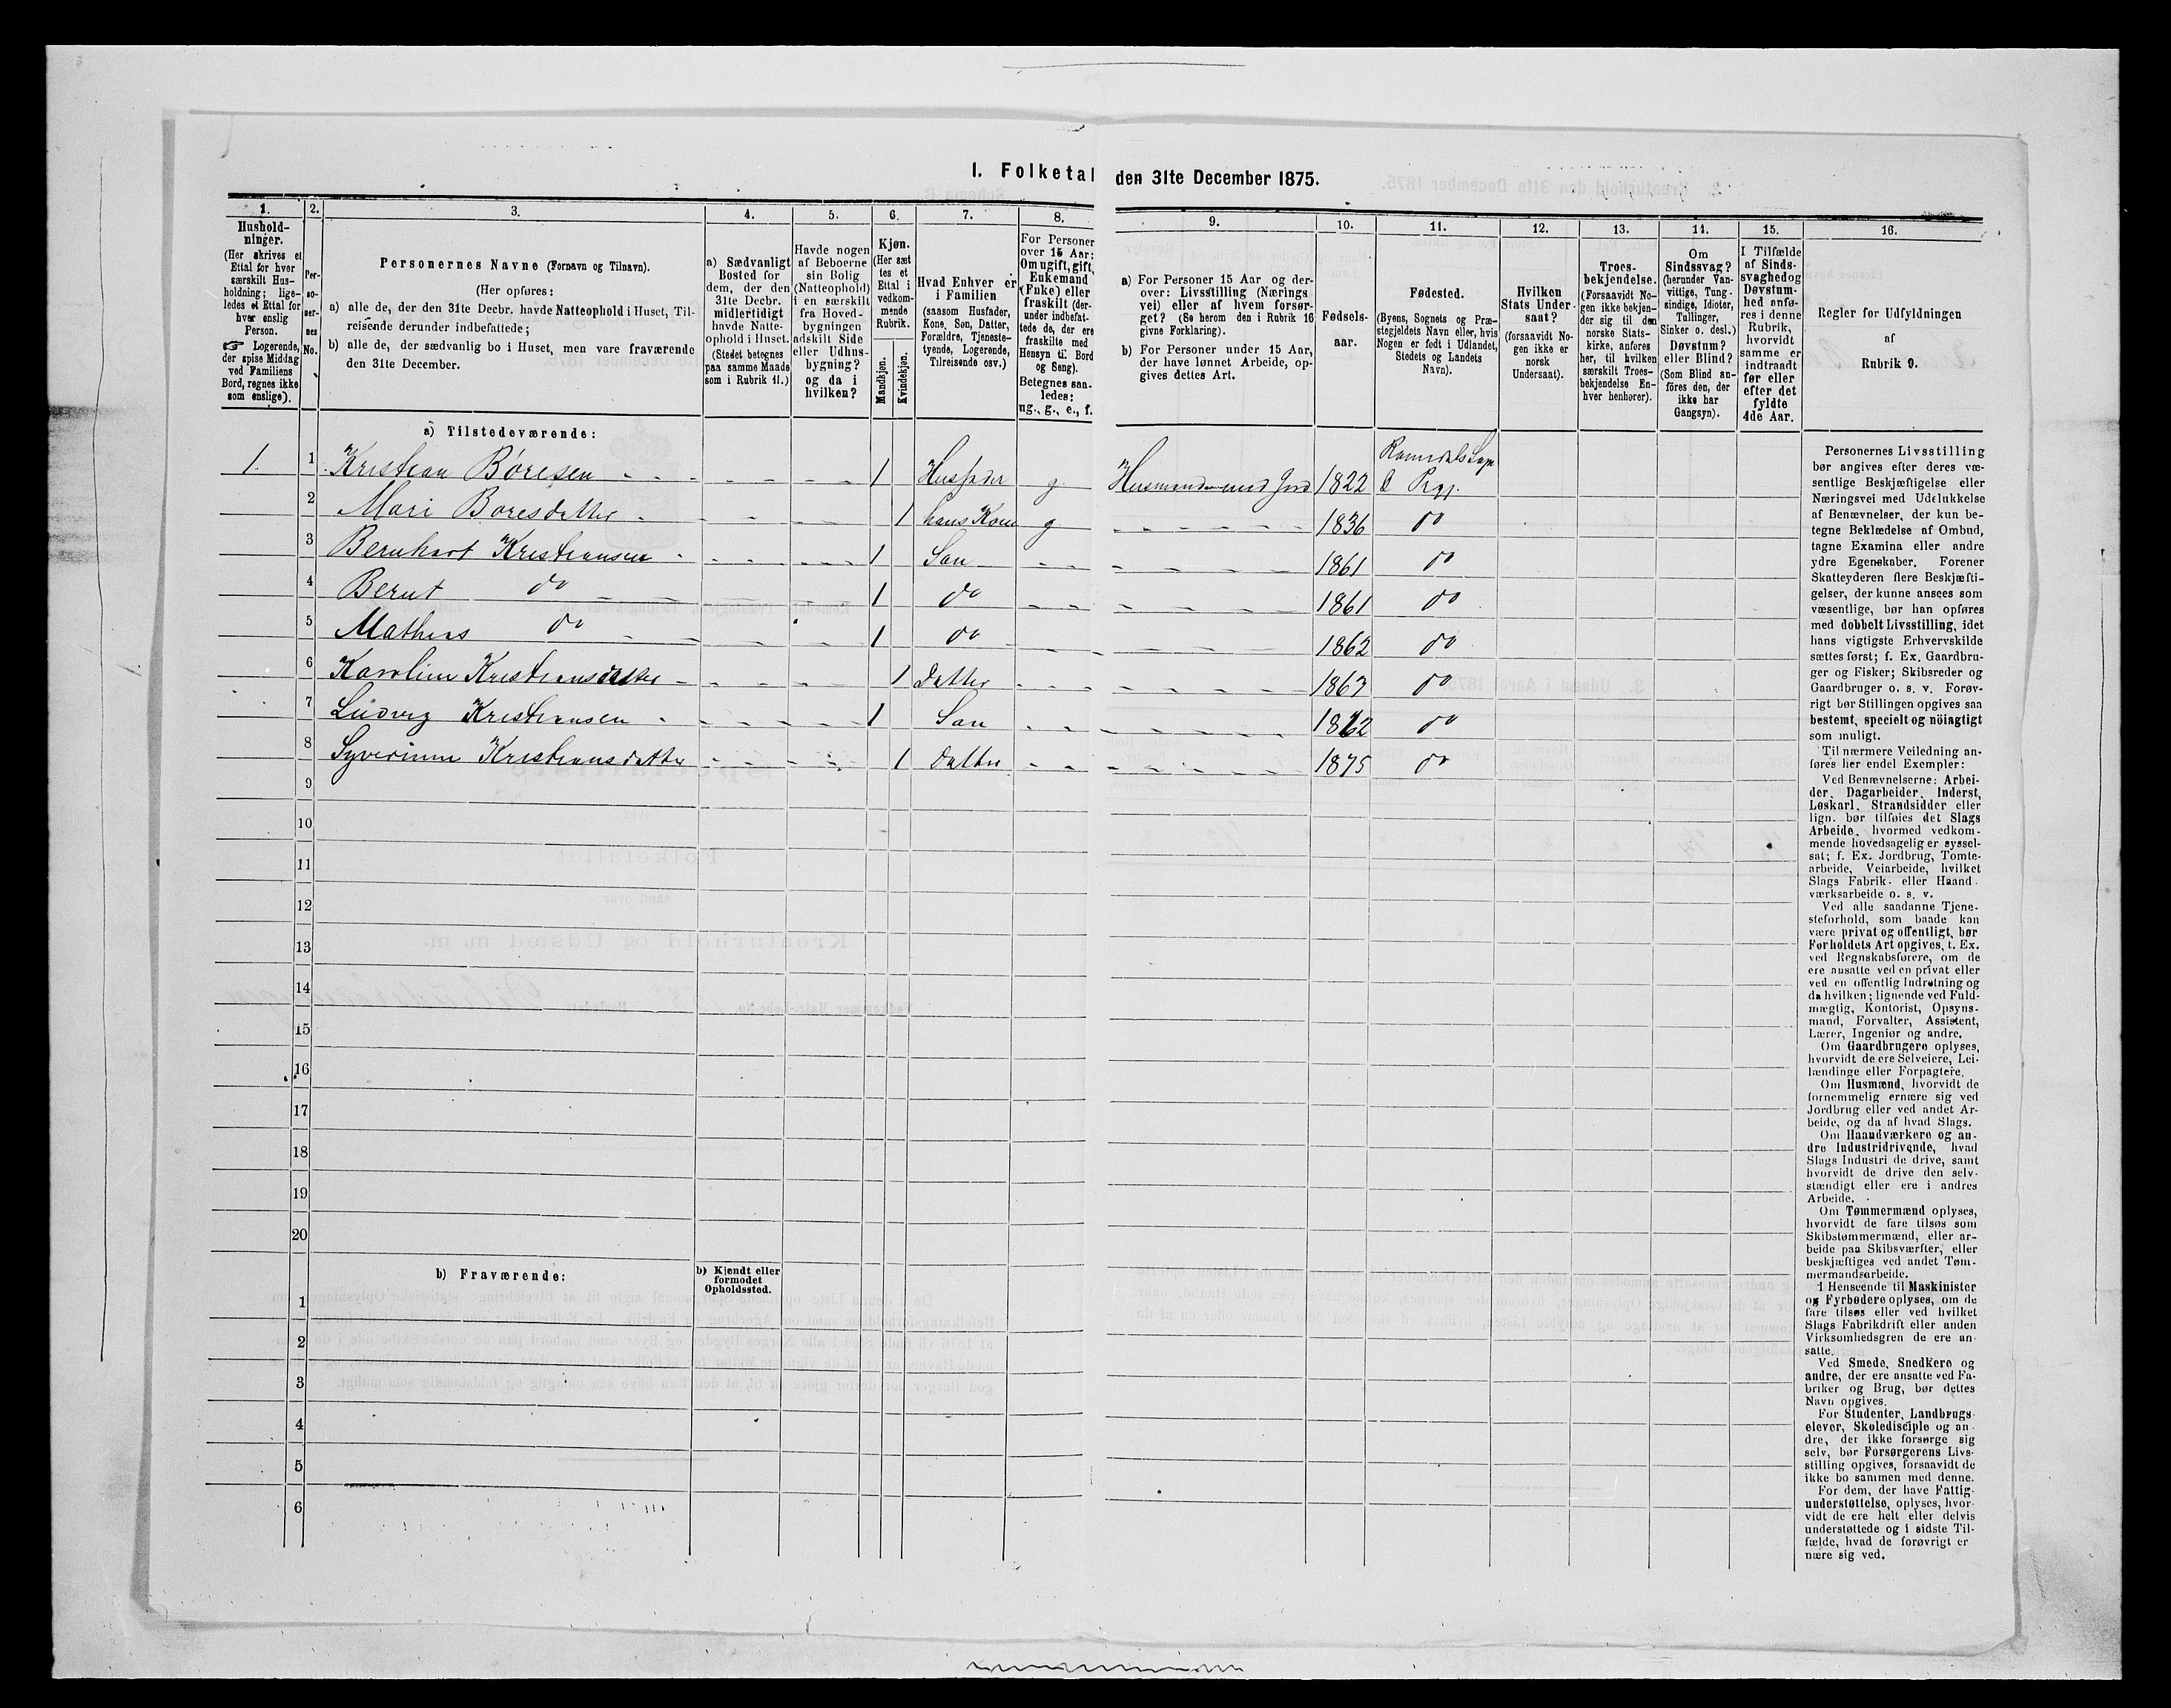 I. Folketal den 31te December 1875.
1. 2. 3. 4. 5. 6. 7. 8. 9. 10. 11. 12. 13. 14. 15. 16.
Hushold-
ninger.
(Her skrives et
Ettal for hver
særskilt Hus-
holdning; lige-
ledes et Ettal for
hver enslig
Person.
☞ Logerende,
der spise Middag
ved Familiens
Bord, regnes ikke
som enslige).
Per-
so-
ner-
nes
No.
Personernes Navne (Fornavn og Tilnavn).
(Her opføres:
a) alle de, der den 31te Decbr. havde Natteophold i Huset, Til-
reisende derunder indbefattede;
b) alle de, der sædvanlig bo i Huset, men vare fraværende
den 31te December.
a) Sædvanligt
Bosted for
dem, der den
31te Decbr.
midlertidigt
havde Natte-
ophold i Huset.
(Stedet betegnes
paa samme Maade
som i Rubrik 11.)
Havde nogen
af Beboerne
sin Bolig
(Natteophold)
i en særskilt
fra Hoved-
bygningen
adskilt Side
eller Udhus-
bygning?
og da i
hvilken?
Kjøn.
(Her sæt
tes et
Ettal i
vedkom-
mende
Rubrik.
Mandkjøn.
Kvindekjøn.
Hvad Enhver er
i Familien
(saasom Husfader,
Kone, Søn, Datter,
Forældre, Tjeneste-
tyende, Logerende,
Tilreisende osv.)
For Personer
over 15 Aar:
Om ugift, gift,
Enkemand
(Enke) eller
fraskilt (der-
under indbefat-
tede de, der ere
fraskilte med
Hensyn til Bord
og Seng).
Betegnes saa-
ledes:
ug., g., e., f.
a) For Personer 15 Aar og der-
over: Livsstilling (Nærings
vei) eller af hvem forsør-
get? (Se herom den i Rubrik 16
givne Forklaring).
b) For Personer under 15 Aar,
der have lønnet Arbeide, op-
gives dettes Art.
Fødsels-
aar.
Fødested.
(Byens, Sognets og Præ-
stegjeldets Navn eller, hvis
Nogen er født i Udlandet,
Stedets og Landets
Navn).
Hvilken
Stats Under-
saat?
(forsaavidt No-
gen ikke er
norsk
Undersaat).
Troes-
bekjendelse.
(Forsaavidt No-
gen ikke bekjen-
der sig til den
norske Stats-
kirke, anføres
her, til hvilken
særskilt Troes-
bekjendelse En-
hver henhører).
Om
Sindssvag?
(herunder Van-
vittige, Tung-
sindige, Idioter,
Tullinger,
Sinker o. desl.)
Døvstum?
eller Blind?
(Som Blind an-
føres den, der
ikke har
Gangsyn).
I Tilfælde
af Sinds-
svaghed og
Døvstum-
hed anfø-
res i denne
Rubrik,
hvorvidt
samme er
indtraadt
før eller
efter det
fyldte
4de Aar.
Regler for Udfyldningen
af
Rubrik 9.
a) Tilstedeværende:
1. 1 Kristian Børesen 1 Husfader g Husmand med Jord 1822 Romedals Sogn & Prgj.
2 Mari Boresdatter 1 hans Kone g 1836 do
3 Bernhart Kristiansen 1 Søn 1861 do
4 Bernt do 1 do 1861 do
5 Mathias do 1 do 1862 do
6 Karoline Kristiansdatter 1 Datter 1867 do
7 Ludvig Kristiansen 1 Søn 1872 do
8 Syverinne Kristiansdatter 1 datter 1875 do
9
10
11
12
13
14
15
16
17
18
19
20
b) Fraværende:
b) Kjendt eller
formodet
Opholdssted.
1
2
3
4
5
6
Personernes Livsstilling
bør angives efter deres væ-
sentlige Beskjæftigelse eller
Næringsvei med Udelukkelse
af Benævnelser, der kun be-
tegne Beklædelse af Ombud,
tagne Examina eller andre
ydre Egenskaber. Forener
Skatteyderen flere Beskjæfti-
gelser, der kunne ansees som
væsentlige, bør han opføres
med dobbelt Livsstilling, idet
hans vigtigste Erhvervskilde
sættes først; f. Ex. Gaardbru-
ger og Fisker; Skibsreder og
Gaardbruger o. s. v. Forøv-
rigt bør Stillingen opgives saa
bestemt, specielt og nöiagtigt
som muligt.
Til nærmere Veiledning an-
føres her endel Exempler:
Ved Benævnelserne: Arbei-
der, Dagarbeider, Inderst,
Løskarl, Strandsidder eller
lign. bør tilføies det Slags
Arbeide, hvormed vedkom-
mende hovedsagelig er syssel-
sat; f. Ex. Jordbrug, Tomte-
arbeide, Veiarbeide, hvilket
Slags Fabrik- eller Haand-
værksarbeide o. s. v.
Ved alle saadanne Tjene-
steforhold, som baade kan
være privat og offentligt, bør
Forholdets Art opgives, t. Ex.
ved Regnskabsførere, om de
ere ansatte ved en privat eller
ved en offentlig Indretning og
da hvilken; lignende ved Fuld-
mægtig, Kontorist, Opsyns-
mand, Forvalter, Assistent,
Lærer, Ingeniør og andre.
Om Gaardbrugere oplyses,
hvorvidt de ere Selveiere, Lei-
lændinge eller Forpagtere.
Om Husmænd, hvorvidt de
fornemmelig ernære sig ved
Jordbrug eller ved andet Ar-
beide, og da af hvad Slags.
Om Haandværkere og an-
dre Industridrivende, hvad
Slags Industri de drive, samt
hvorvidt de drive den selv-
stændigt eller ere i andres
Arbeide.
Om Tømmermænd oplyses,
hvorvidt de fare tilsøs som
Skibstømmermænd, eller ar-
beide paa Skibsværfter, eller
beskjæftiges ved andet Tøm-
mermandsarbeide.
I Henseende til Maskinister
og Fyrbødere oplyses, om de
fare tilsøs eller ved hvilket
Slags Fabrikdrift eller anden
Virksomhedsgren de ere an-
satte.
Ved Smede, Snedkere og
andre, der ere ansatte ved Fa-
briker og Brug, bør dettes
Navn opgives.
For Studenter, Landbrugs-
elever, Skoledisciple og an-
dre, der ikke forsørge sig
selv, bør Forsørgerens Livs-
stilling opgives, forsaavidt de
ikke bo sammen med denne.
For dem, der have Fattig-
understøttelse, oplyses, hvor-
vidt de ere helt eller delvis
understøttede og i sidste Til-
fælde, hvad de forøvrigt er
nære sig ved.